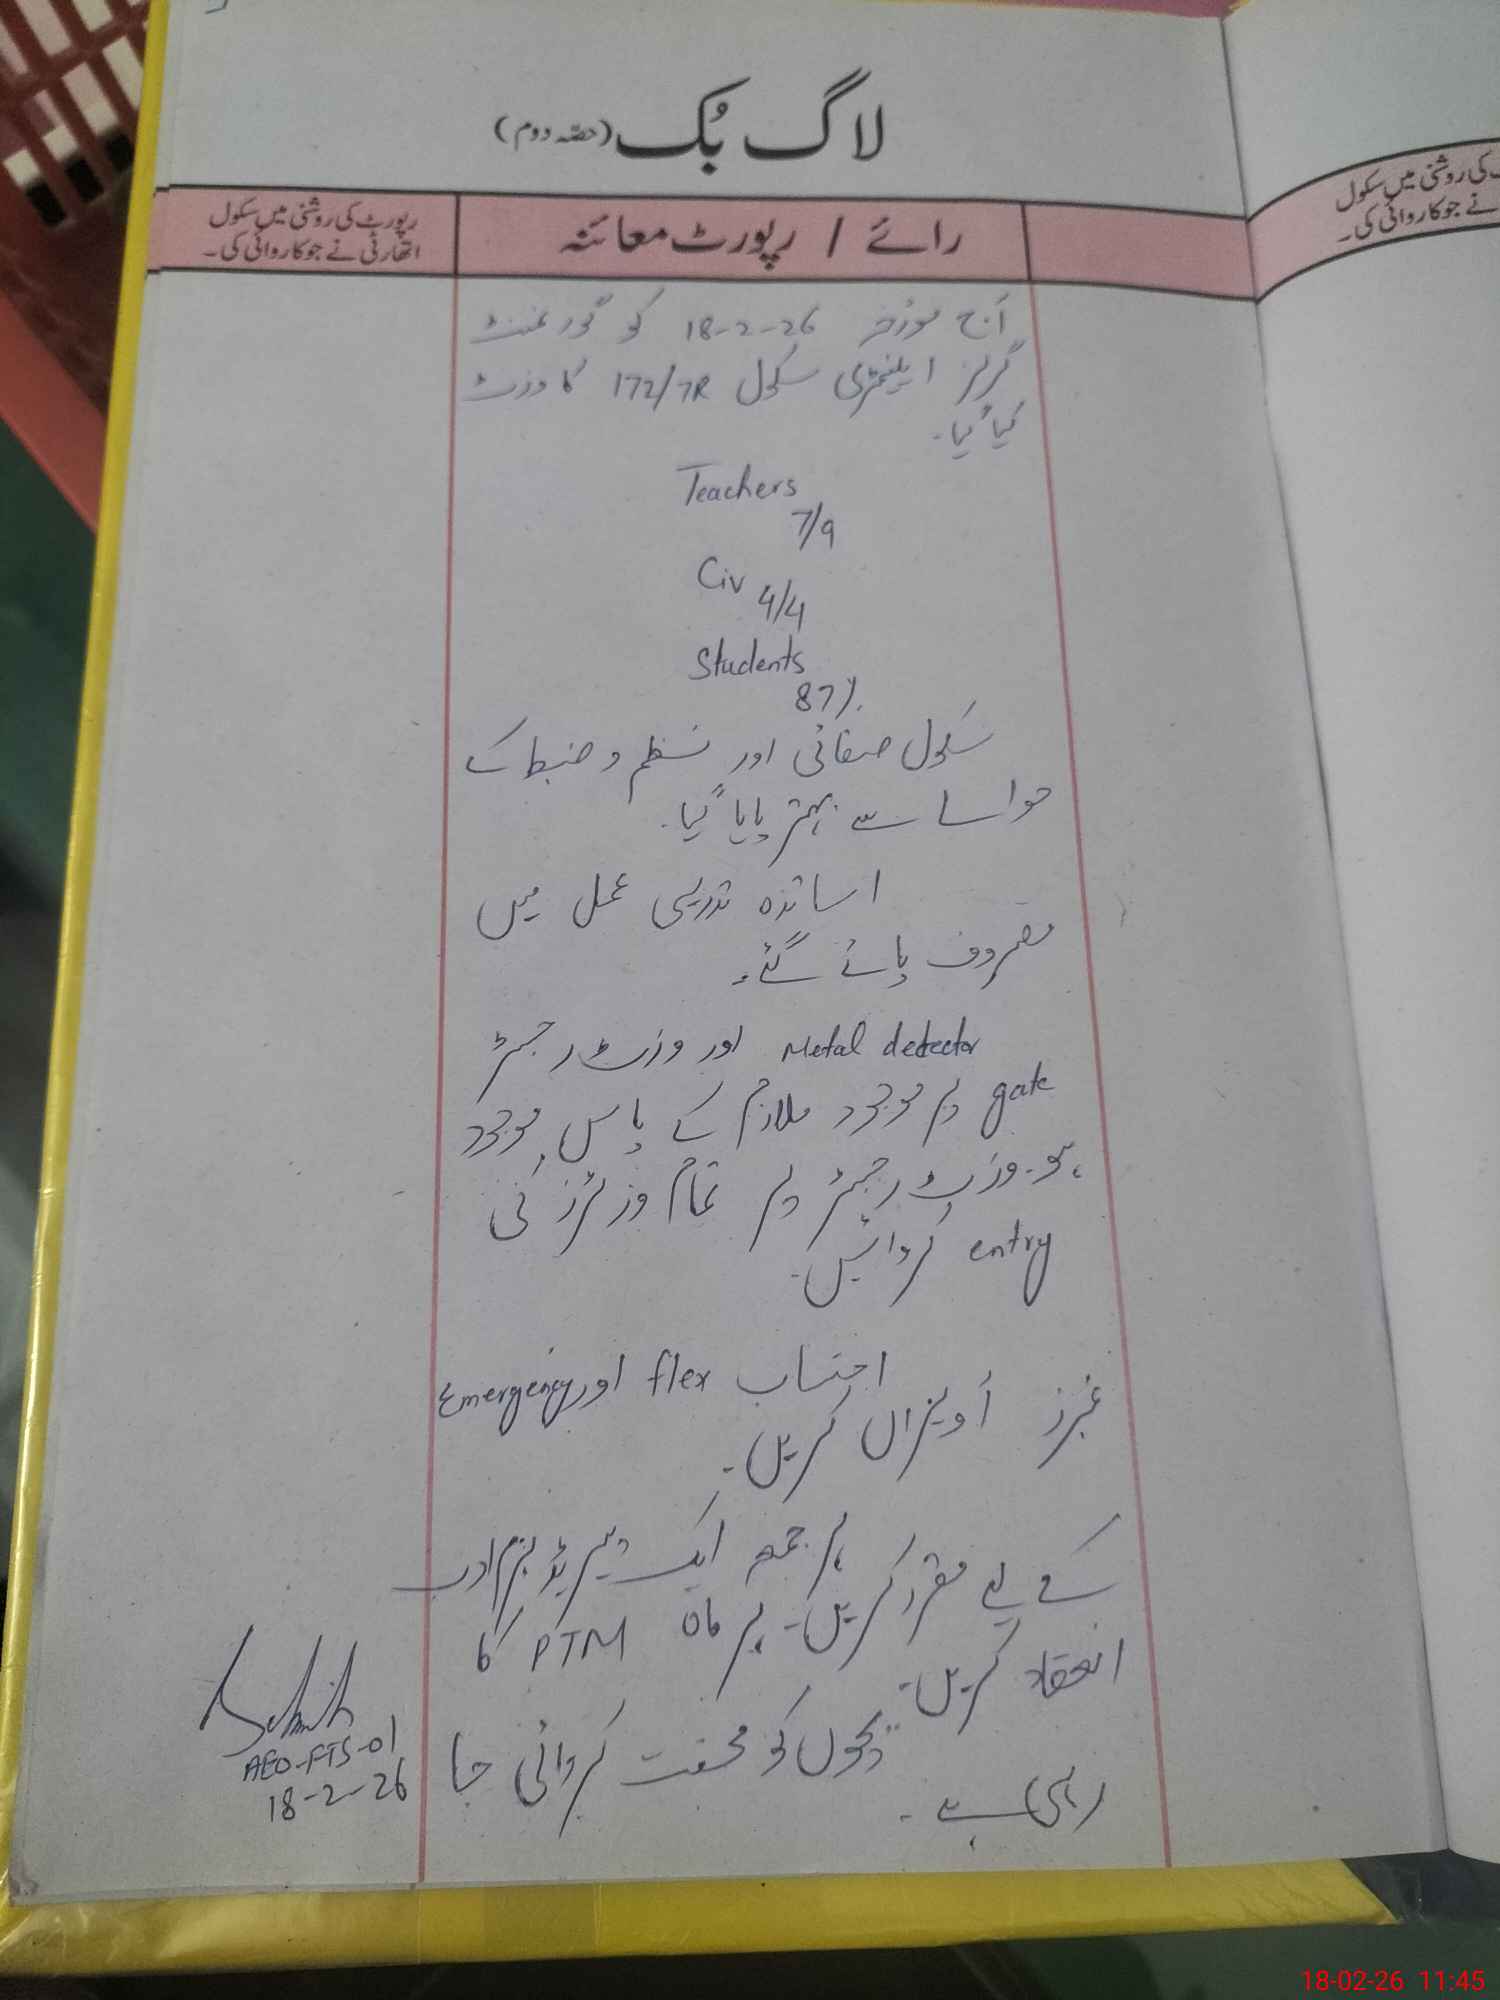 لاگ بُک (حصّہ دوم)
رائے / رپورٹ معائنہ
رپورٹ کی روشنی میں سکول
اتھارٹی نے جو کاروائی کی۔
کی روشنی میں سکول
نے جو کاروائی کی۔
آج مورخہ 18-2-26 کو گورنمنٹ
گرلز ایلیمنٹری سکول 172/7R کا وزٹ
کیا گیا۔
Teachers
7/9
Civ
4/4
Students
87%
سکول صفائی اور نظم و ضبط کے
حوالے سے بہتر پایا گیا۔
اساتذہ تدریسی عمل میں
مصروف پائے گئے۔
Metal detector اور وزٹ رجسٹر
gate پر موجود ملازم کے پاس موجود
ہو۔ وزٹ رجسٹر پر تمام وزٹرز کی
entry کروائیں۔
احتساب flex اور Emergency
نمبرز آویزاں کریں۔
ہر جمعہ ایک پیریڈ بزم ادب
کے لیے مقرر کریں۔ ہر ماہ PTM کا
انعقاد کریں۔
بچوں کو محنت کروائی جا
رہی ہے۔
AEO-FTS-01
18-2-26
18-02-26 11:45